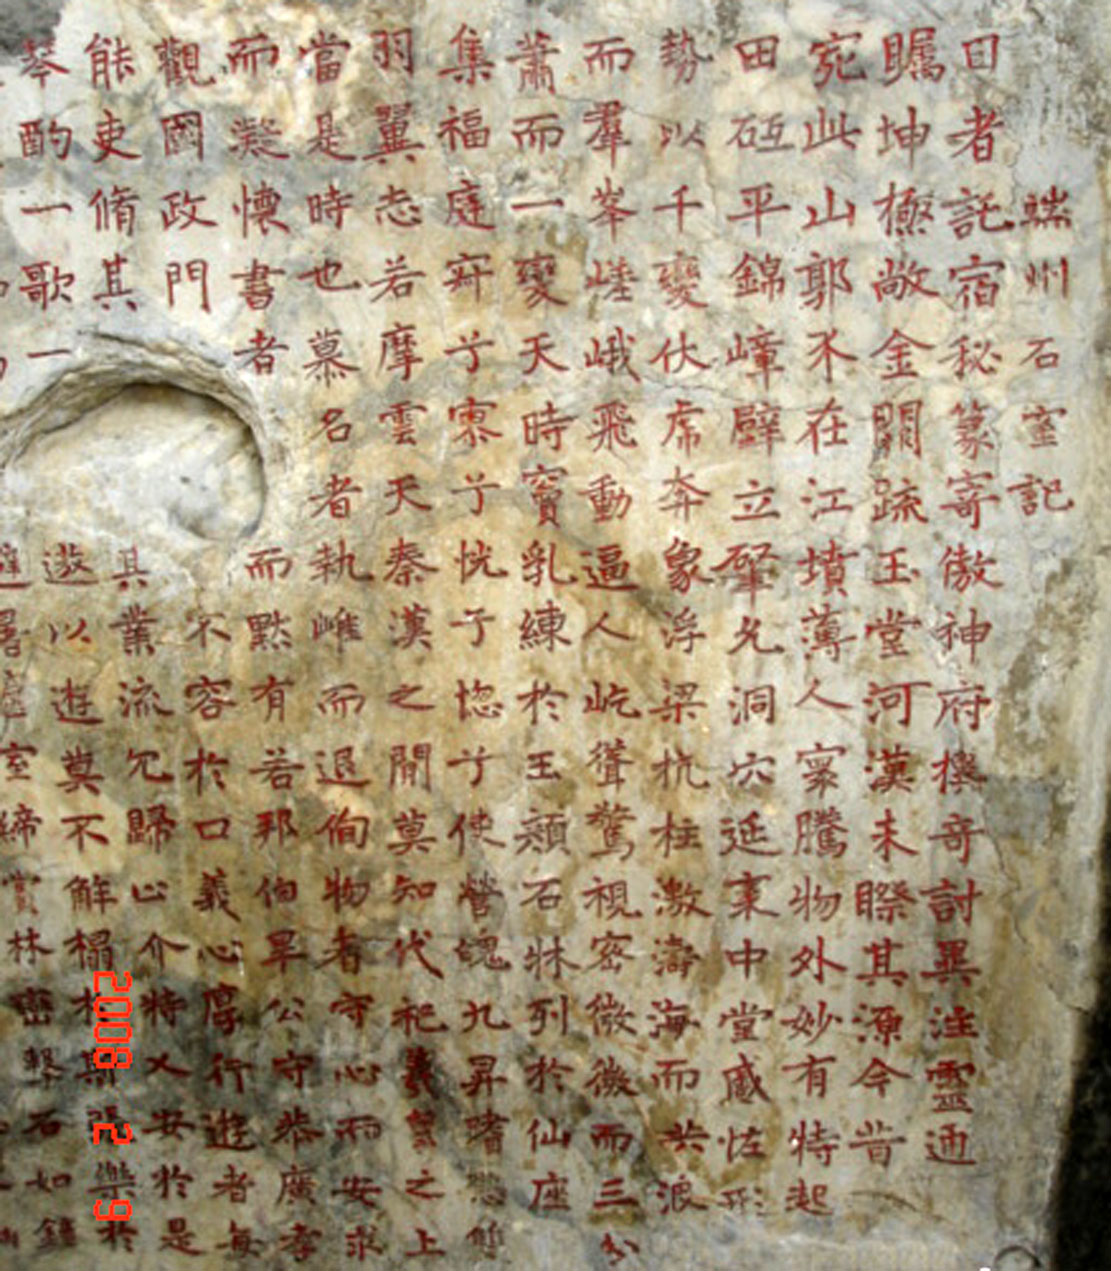 端州石室記
日者託宿秘篆寄傲神府攘奇討異注靈通
矚坤極敞金闕疏玉堂河漢未睽其源今昔
宛此山郭不在江墳薄人寰騰物外妙有特起
田砥平錦嶂壁立肇允洞穴延袤中堂宬怯形
勢以千變伏虎奔象浮梁抗柱激濤海而洪浪
而羣峯嵯峨飛動逼人屹聳驚視密微微而三分
蕭而一變天時竇乳練於玉頦石牀列於仙座
集福庭寂兮寥兮恍兮惚兮使營魄九昇嗜慾
羽翼志若摩雲天秦漢之閒莫知代祀羲皇之上
當是時也慕名者執雌而退徇物者守心而安求
而凝懷書者而黙有若邦伯畢公守恭廣孝
觀國政門不容於口義心厚行遊者每
能吏脩其其業流冗歸心介特乂安於是
琴酌一歌一遊以遊莫不解榻於斯張樂於
避暑虛室締賞林密擊石如鐘
2008 12 9